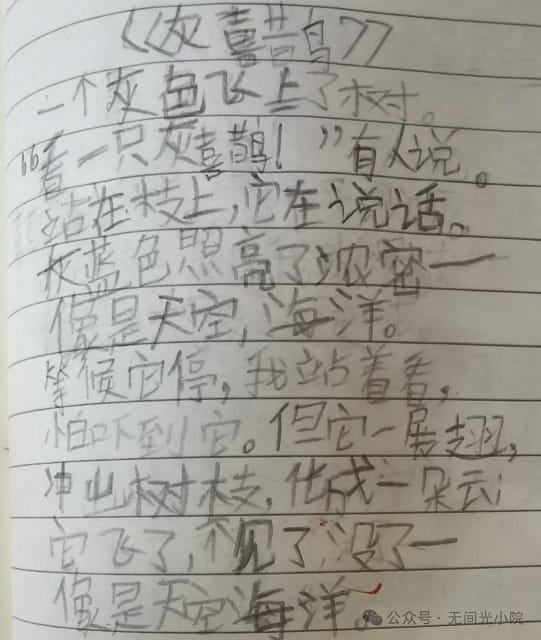 《灰喜鹊》
一个灰色飞上了树。
“看一只灰喜鹊!”有人说。
站在枝上,它在说话。
灰蓝色照亮了浓密一
像是天空,海洋。
等候它停,我站着看,
怕吓到它。但它一展翅,
冲出树枝,化成一朵云;
它飞了,不见了,没了一
像是天空海洋。
公众号·无间光小院